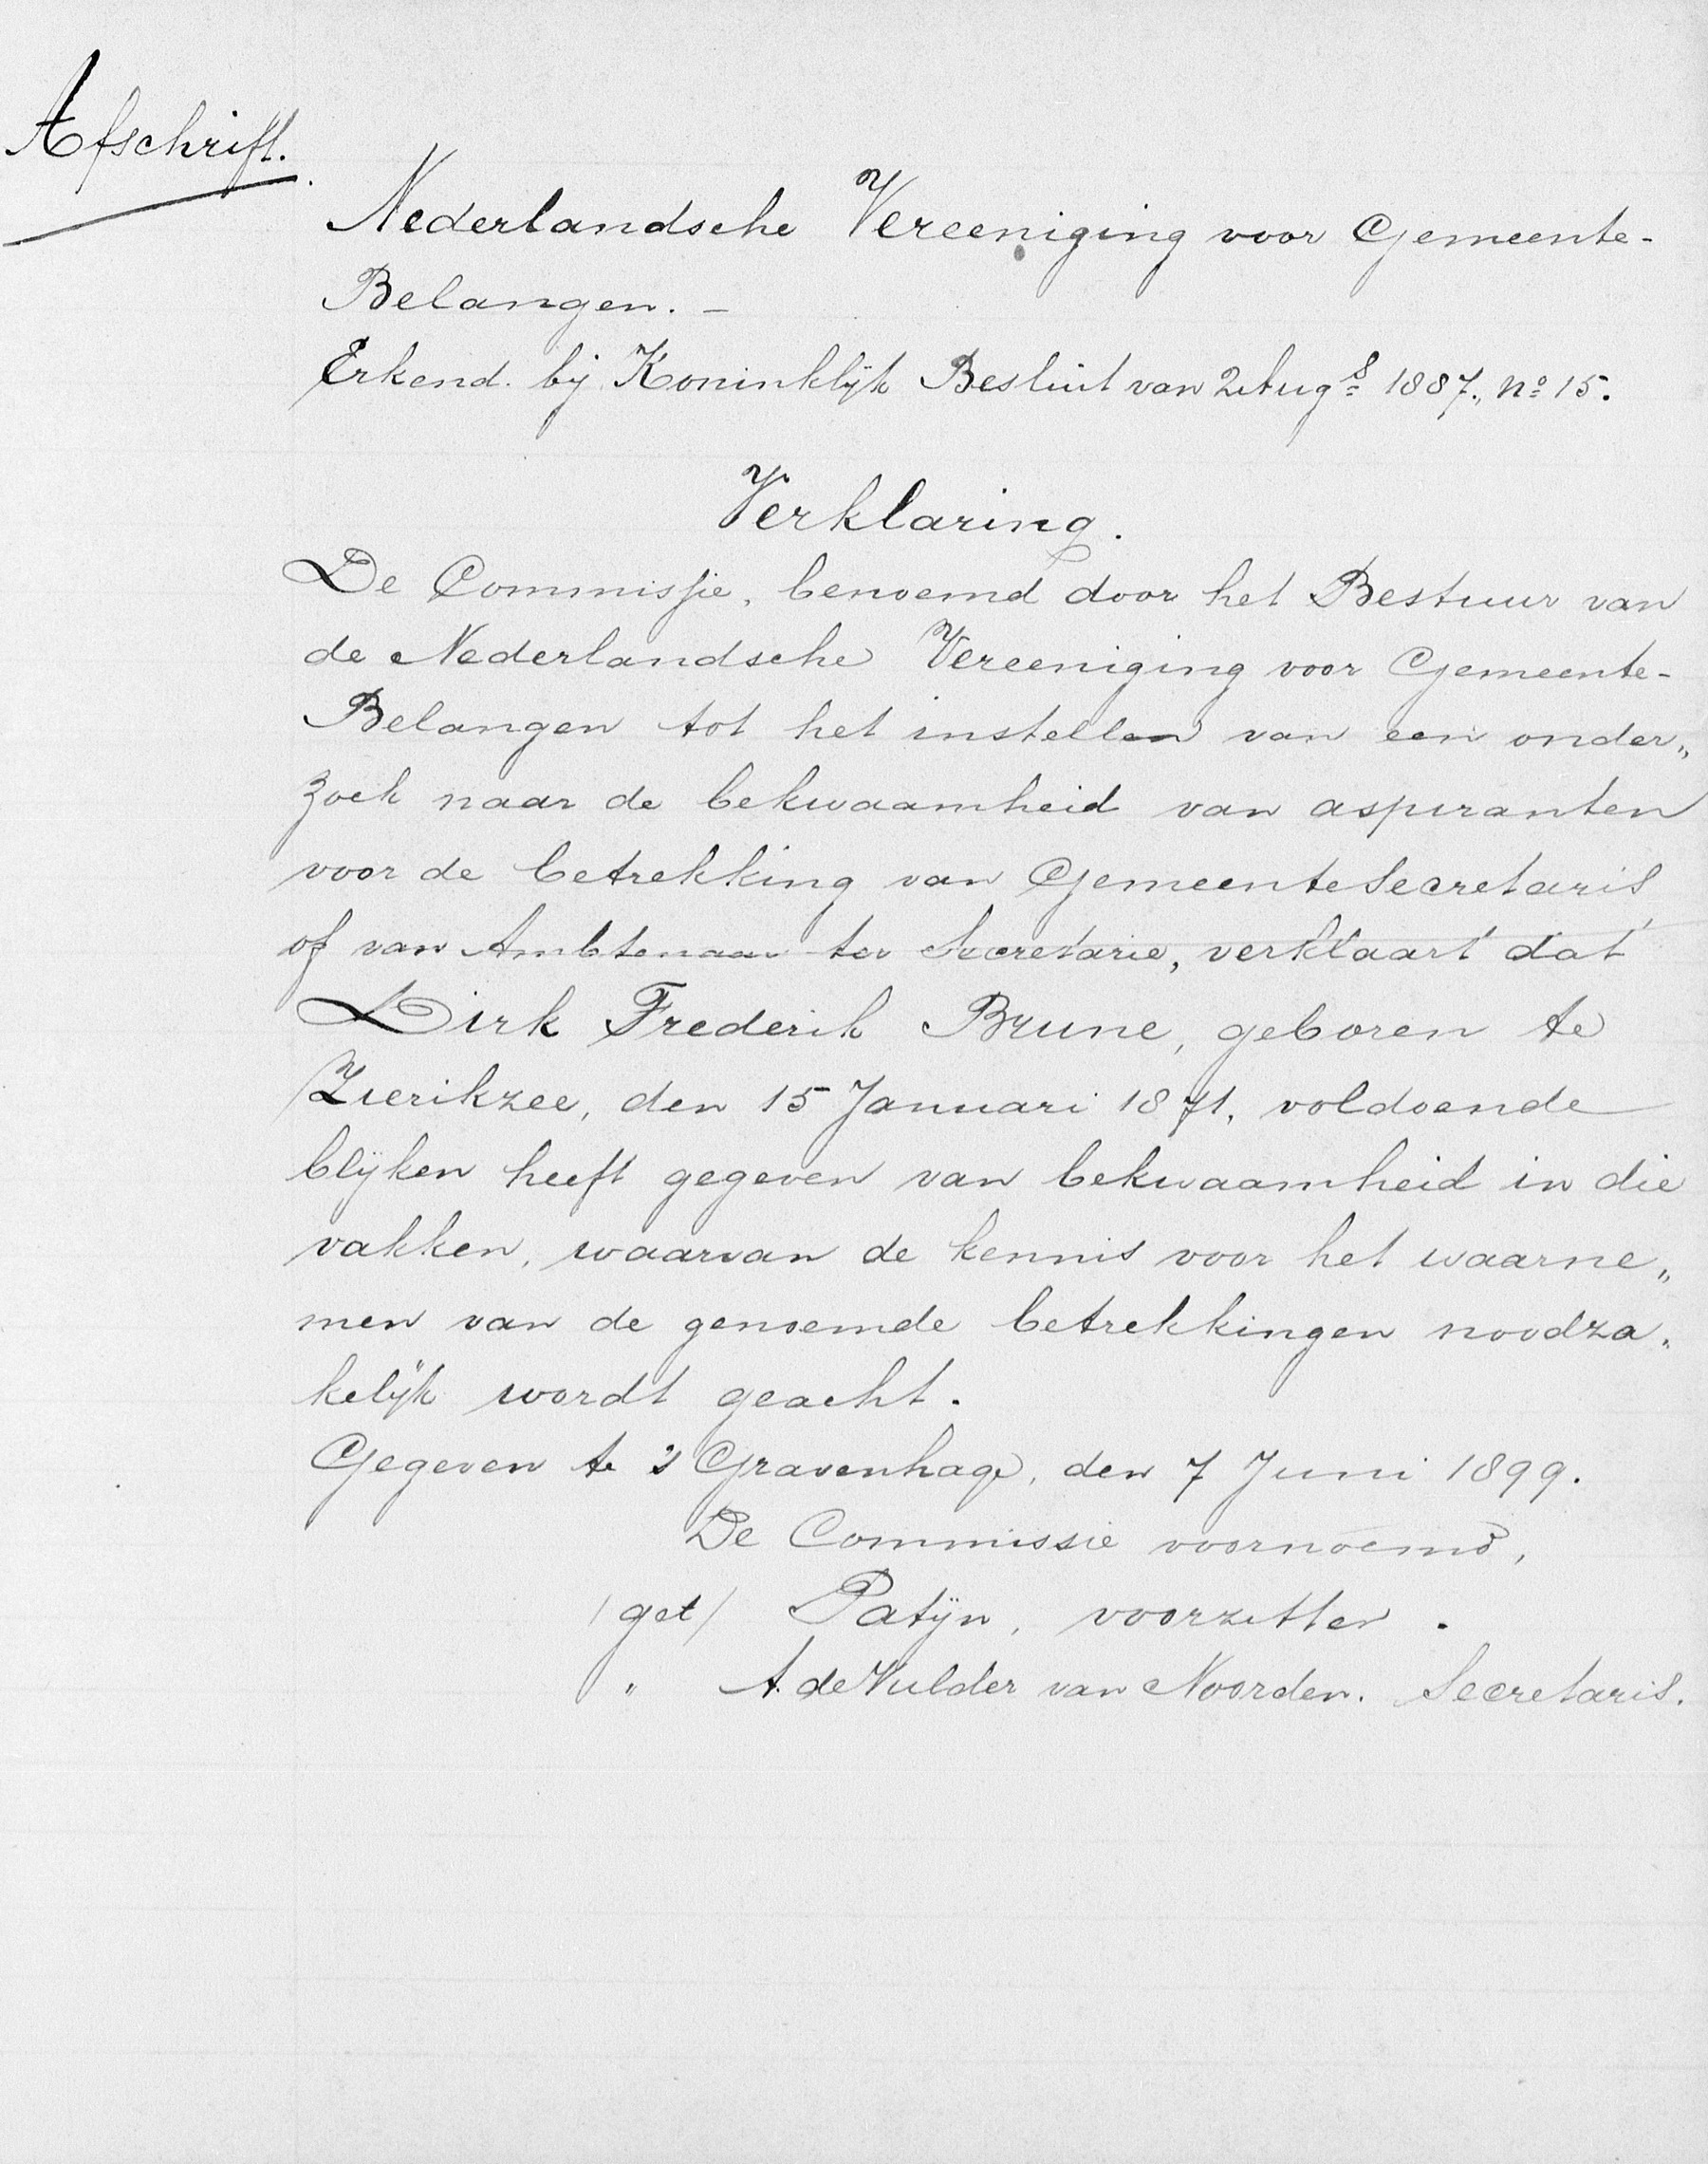 Afschrift.
Nederlandsche Vereeniging voor Gemeente-
Belangen. -
Erkend bij Koninklijk Besluit van 2 Augs 1887, no 15.
Verklaring.
De Commissie, benoemd door het Bestuur van
de Nederlandsche Vereeniging voor Gemeente-
Belangen tot het instellen van een onder„
zoek naar de bekwaamheid van aspiranten
voor de betrekking van Gemeentesecretaris
of van Ambtenaar ter Secretarie, verklaart dat
Dirk Frederik Brune, geboren te
Zierikzee, den 15 Januari 1871, voldoende
blijken heeft gegeven van bekwaamheid in die
vakken, waarvan de kennis voor het waarne„
men van de genoemde betrekkingen noodza„
kelijk wordt geacht.
Gegeven te 's Gravenhage, den 7 Juni 1899.
De Commissie voornoemd,
/get/ Patijn, voorzitter.
" A. de Mulder van Noorden. Secretaris.